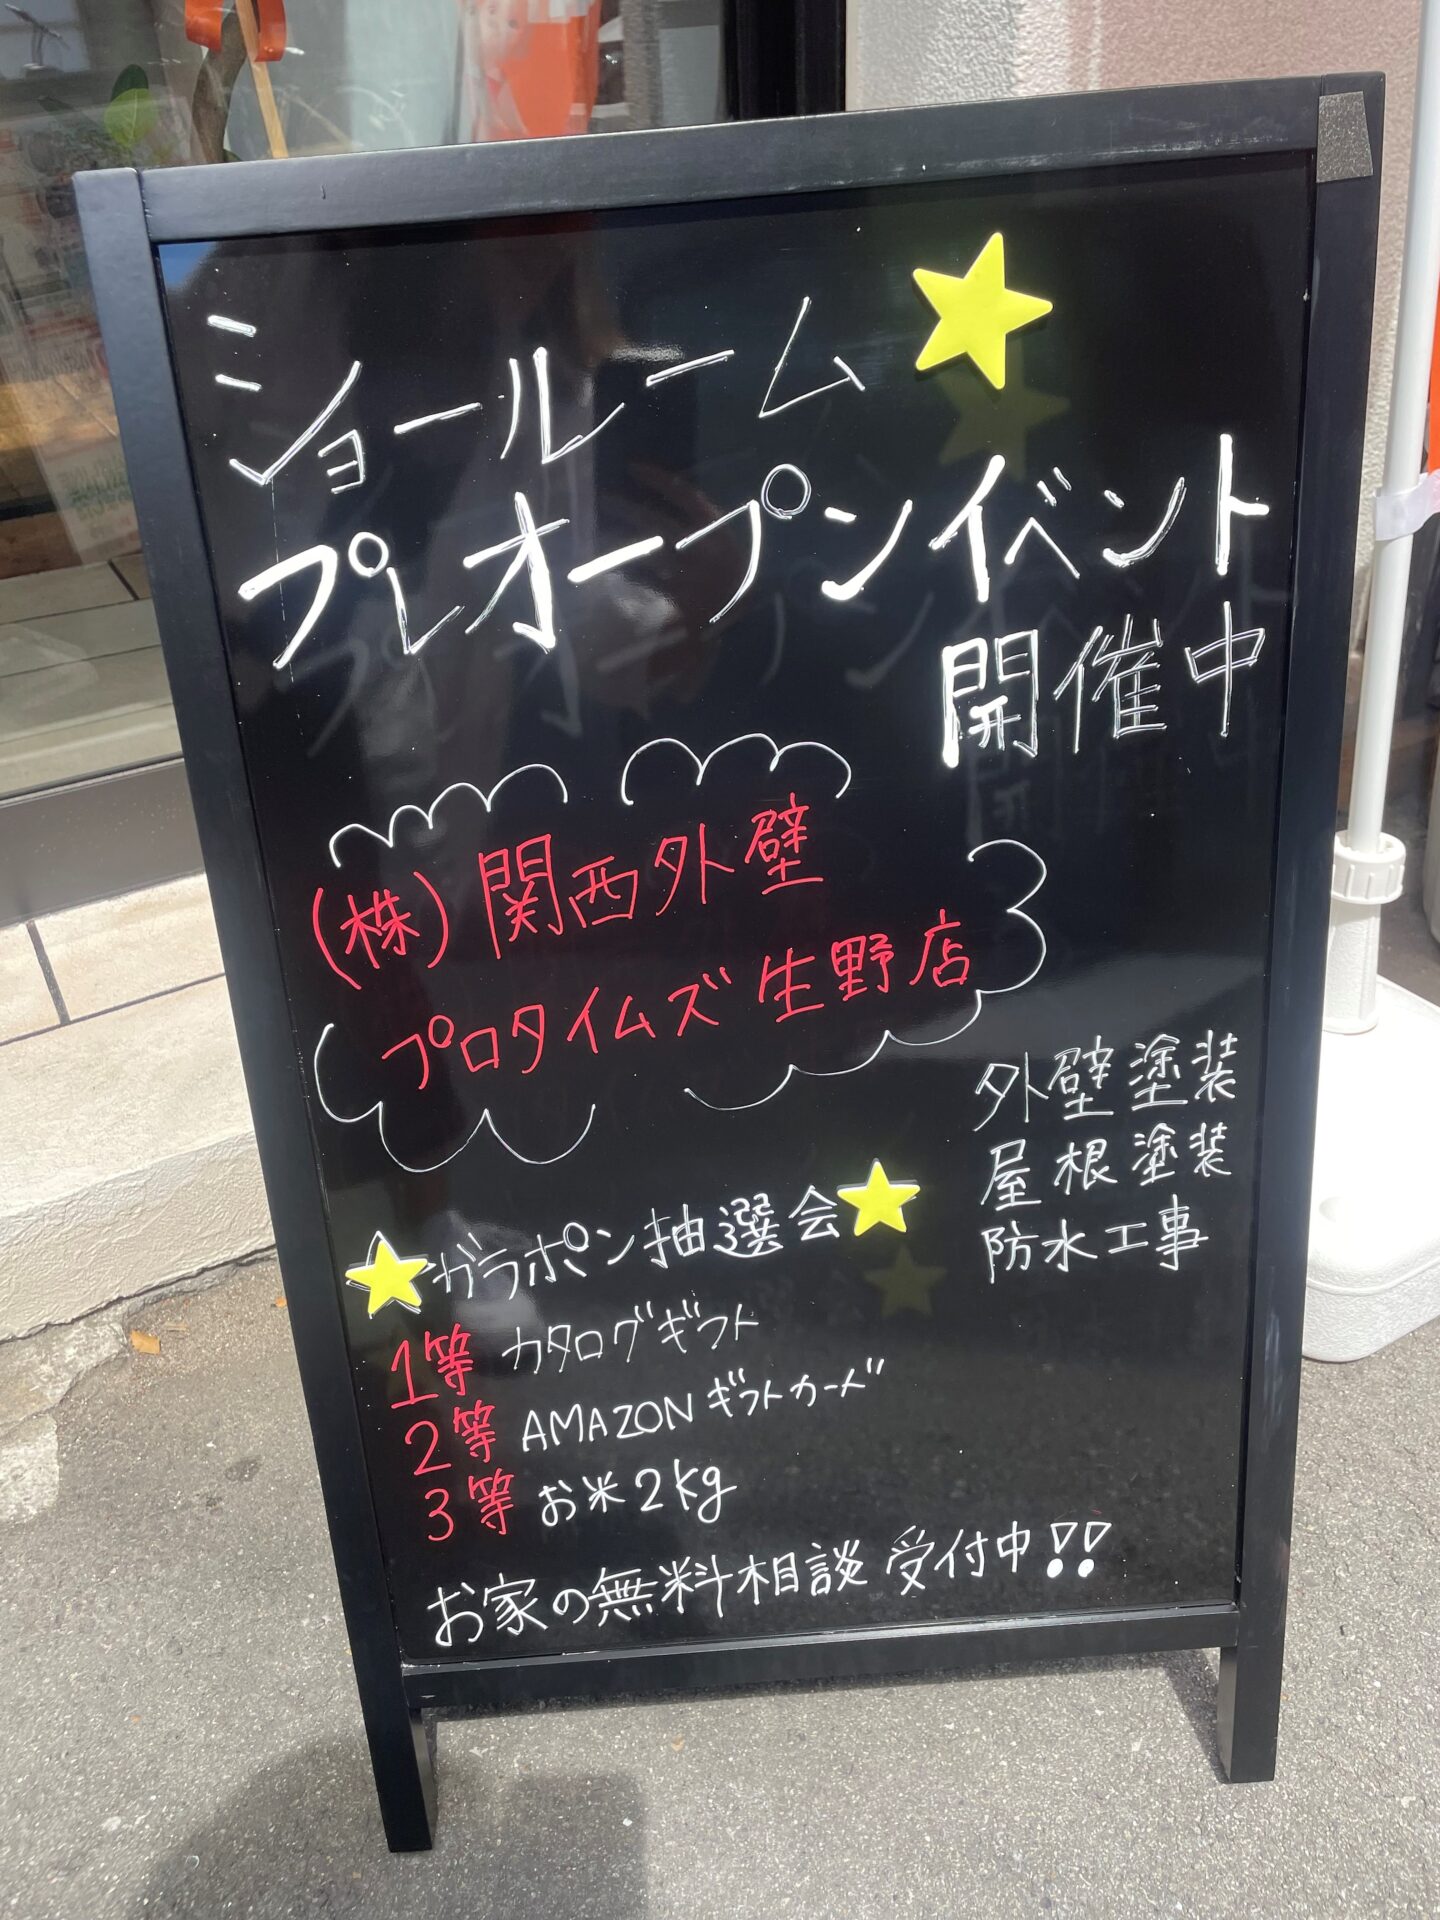 ショールーム
プレオープンイベント
開催中
(株)関西外壁
プロタイムズ生野店
外壁塗装
屋根塗装
防水工事
ガラポン抽選会
1等 カタログギフト
2等 AMAZONギフトカード
3等 お米2kg
お家の無料相談受付中!!